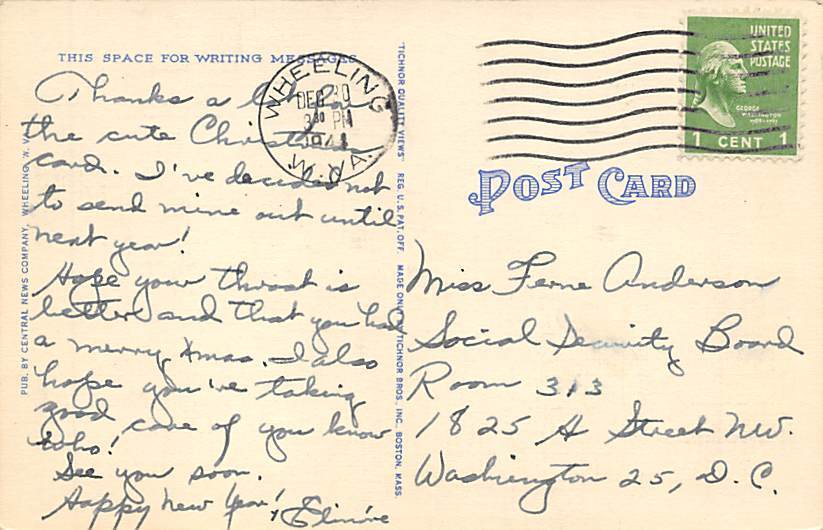 THIS SPACE FOR WRITING MESSAGES
Thanks a lot for
the cute Christmas
card. I've decided not
to send mine out until
next year!
Hope your throat is
better and that you had
a merry Xmas. I also
hope you're taking
good care of you know
who!
See you soon.
Happy New Year!
PUB. BY CENTRAL NEWS COMPANY, WHEELING, W. VA.
"TICHNOR QUALITY VIEWS" REG. U.S. PAT. OFF. MADE ONLY BY TICHNOR BROS., INC., BOSTON, MASS.
WHEELING
DEC 30
3 30 PM
1944
W. VA.
UNITED
STATES
POSTAGE
GEORGE
WASHINGTON
1 CENT 1
POST CARD
Miss Ferne Anderson
Social Security Board
Room 313
1825 H Street NW.
Washington 25, D.C.